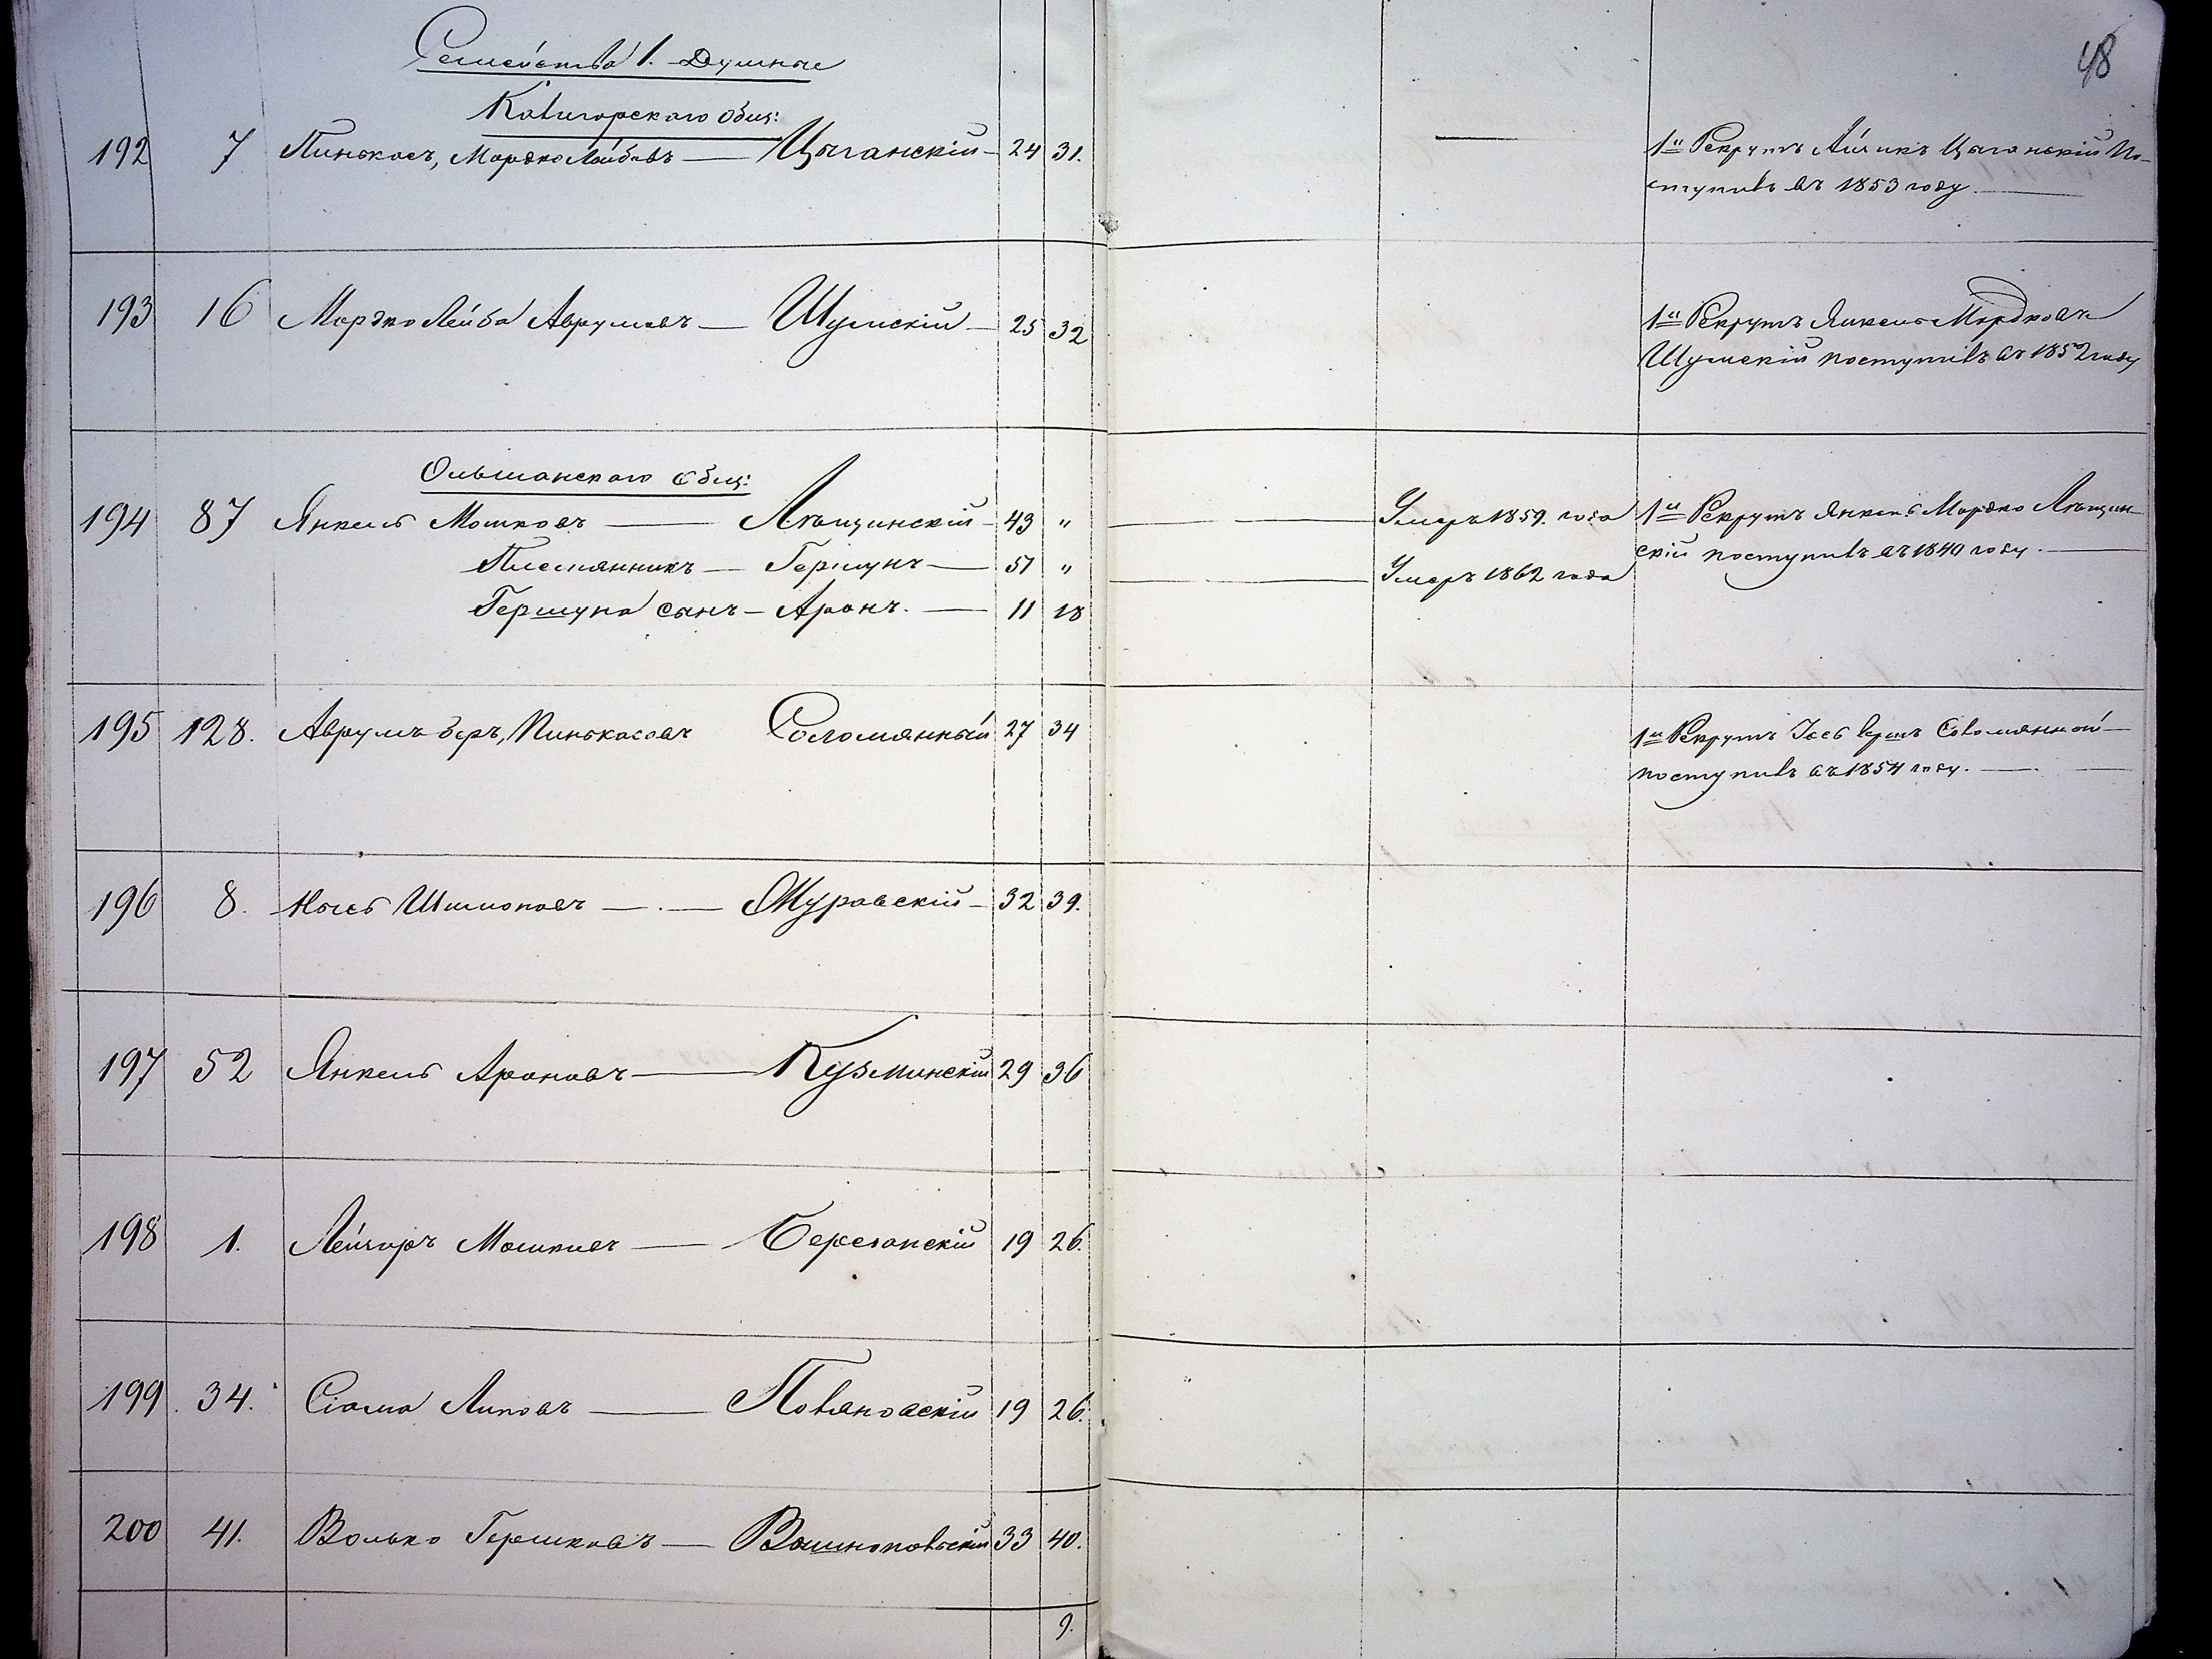 48
Семейства 1. Душные
Кавшорскаго общ:
192 7 Пинькасъ, Мордко Лейбовъ — Цыганскій — 24 31. — 1й Рекрутъ Айзикъ Цыганскій По-
ступивъ въ 1853 году. —
193 16 Мордко Лейба Аврумовъ — Шумскій — 25 32 1й Рекрутъ Янкель Мордковъ
Шумскій поступивъ въ 1852 году
Ольшанскаго общ:
194 87 Янкель Мошковъ — Лѣщинскій — 43 " — Умеръ 1859. года 1й Рекрутъ Янкель Мордко Лѣщин-
скій поступивъ въ 1840 году. —
Племянникъ — Гершунъ — 51 " — Умеръ 1862 года
Гершуна сынъ — Аронъ. — 11 18
195 128. Аврумъ беръ, Пинькасовъ Соломянный 27 34 1й Рекрутъ Іось Соломянной —
поступивъ въ 1854 году. —
196 8. Іось Шимоновъ — . — Муравскій — 32 39.
197 52 Янкель Ароновъ — Кузминскій 29 36
198 1. Лейзоръ Мошковъ — Березанскій 19 26.
199 34. Сіома Липовъ — 19 26.
200 41. Волько Гершковъ — 33 40.
9.